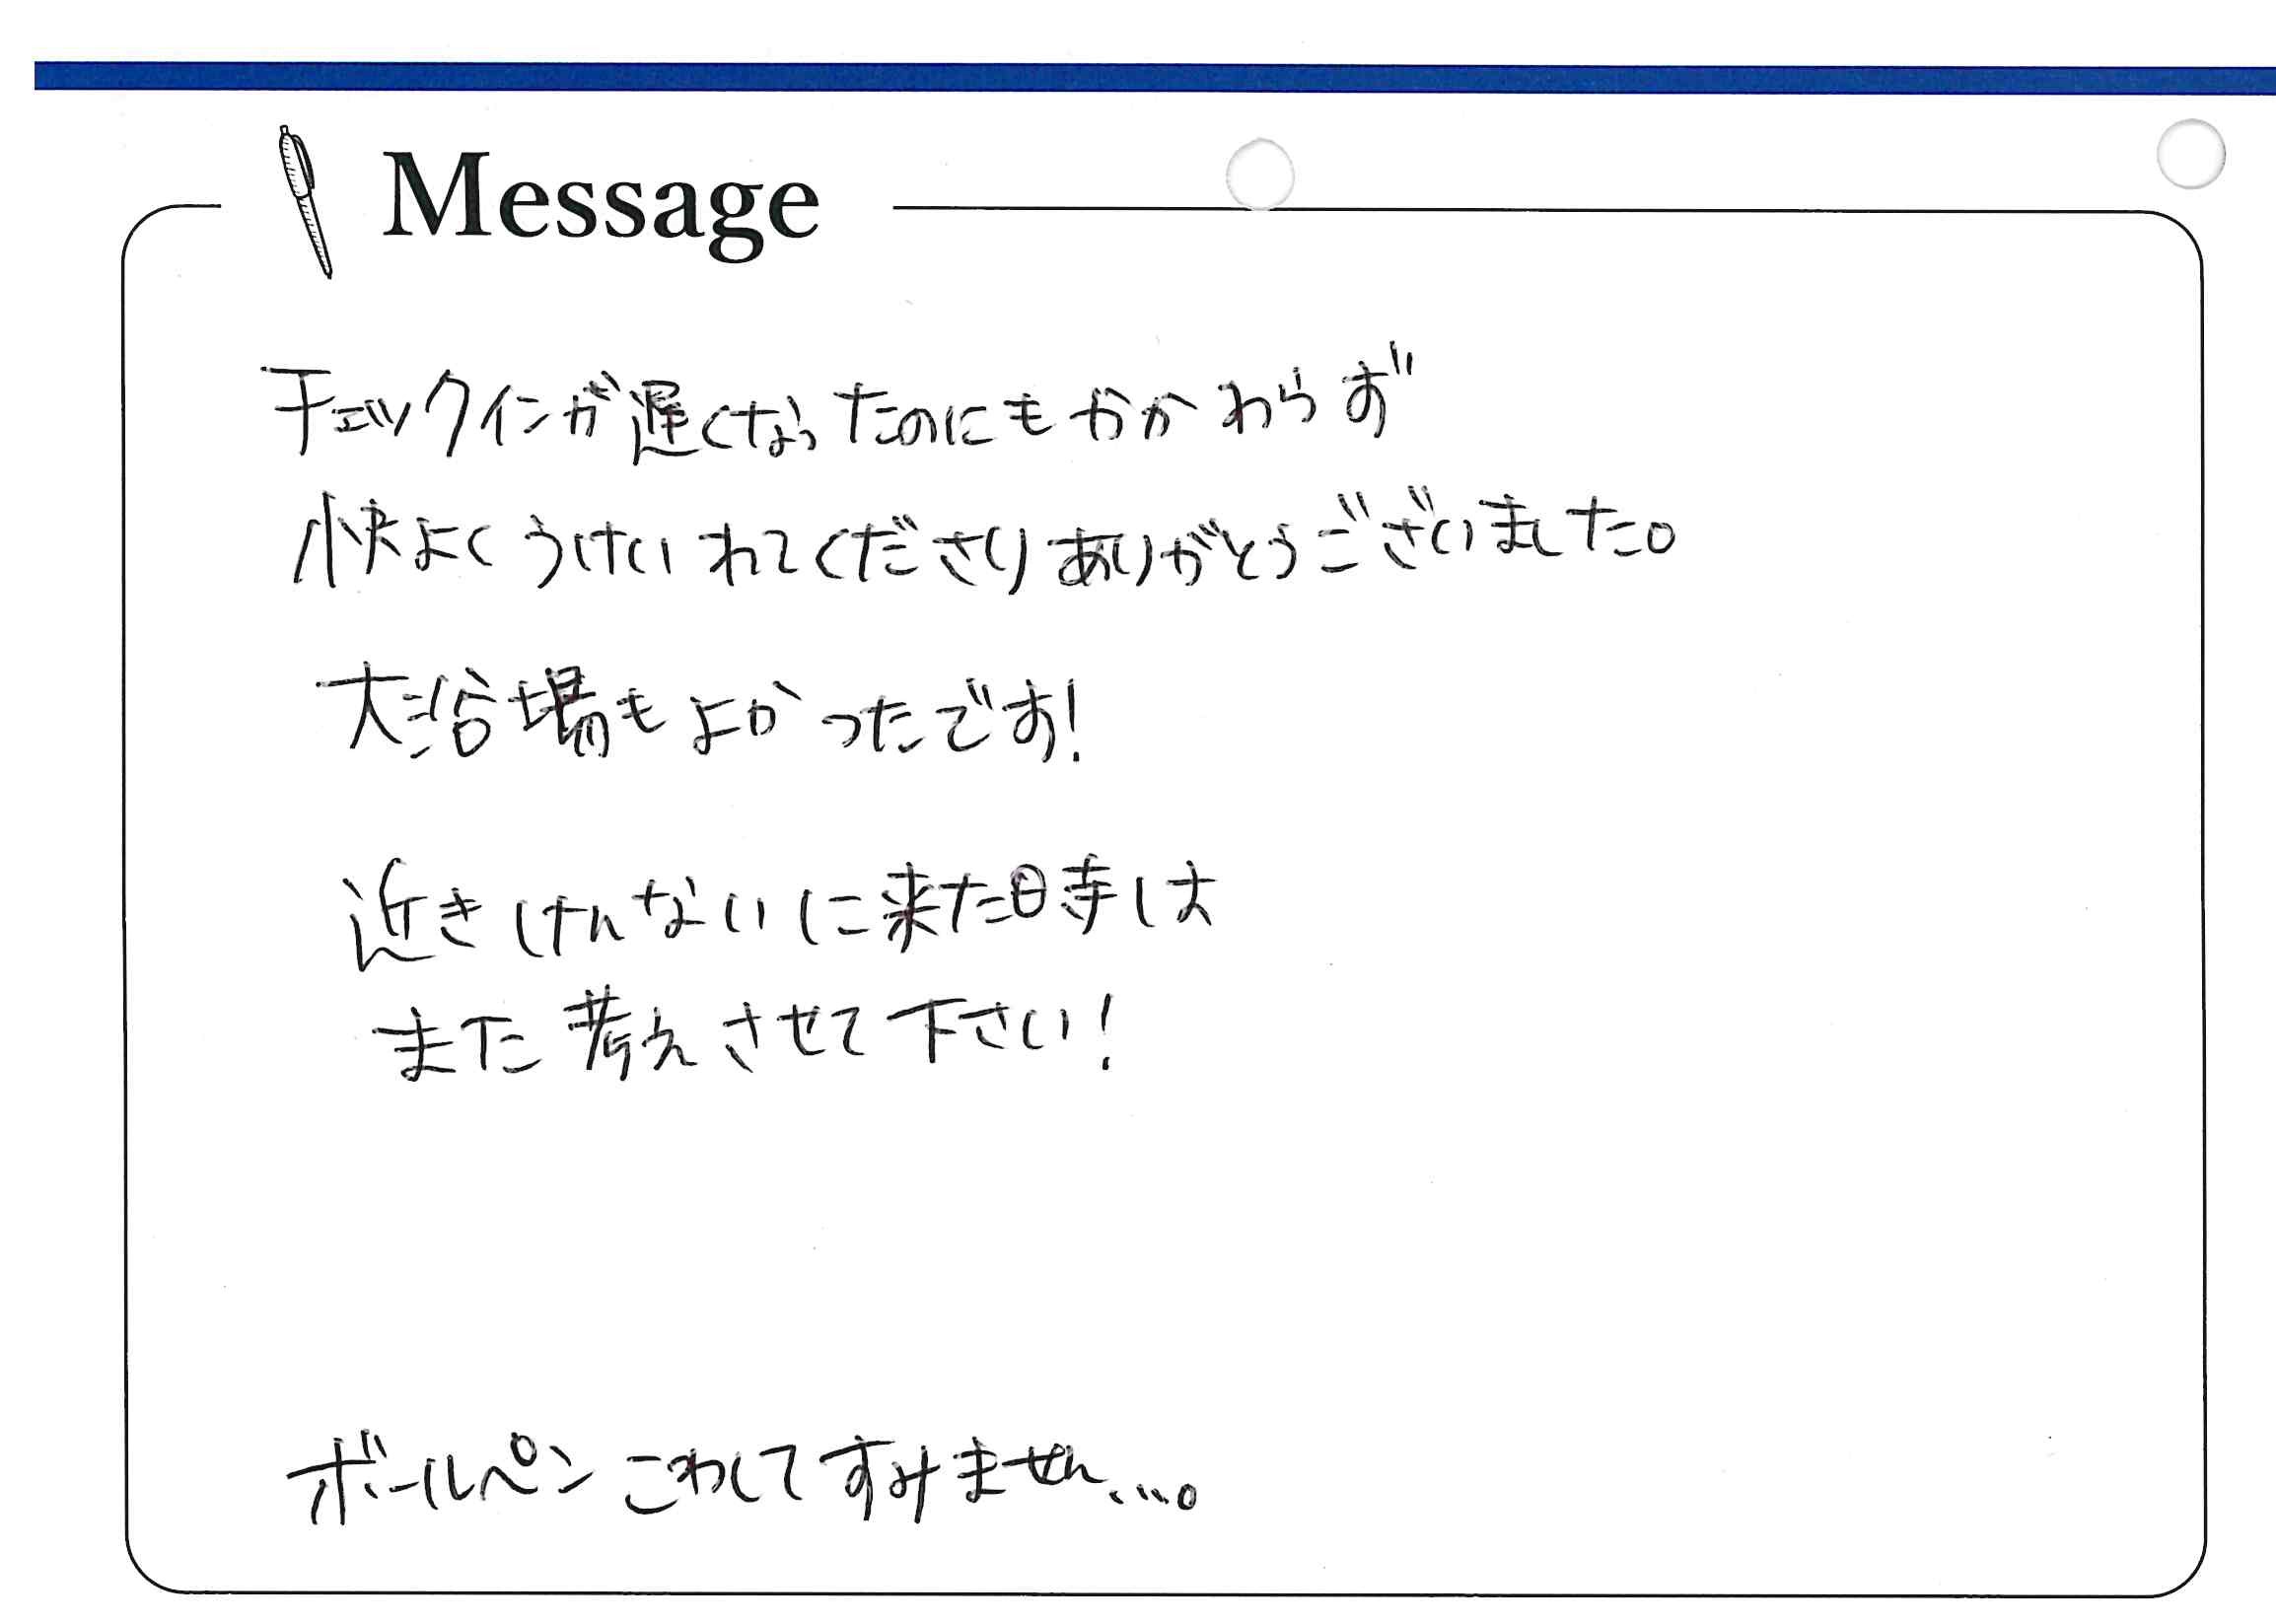 Message
チェックインが遅くなったのにもかかわらず
快よくうけいれてくださりありがとうございました。
大浴場もよかったです!
近きけんないに来た時は
また考えさせて下さい!
ボールペンこわしてすみません...。